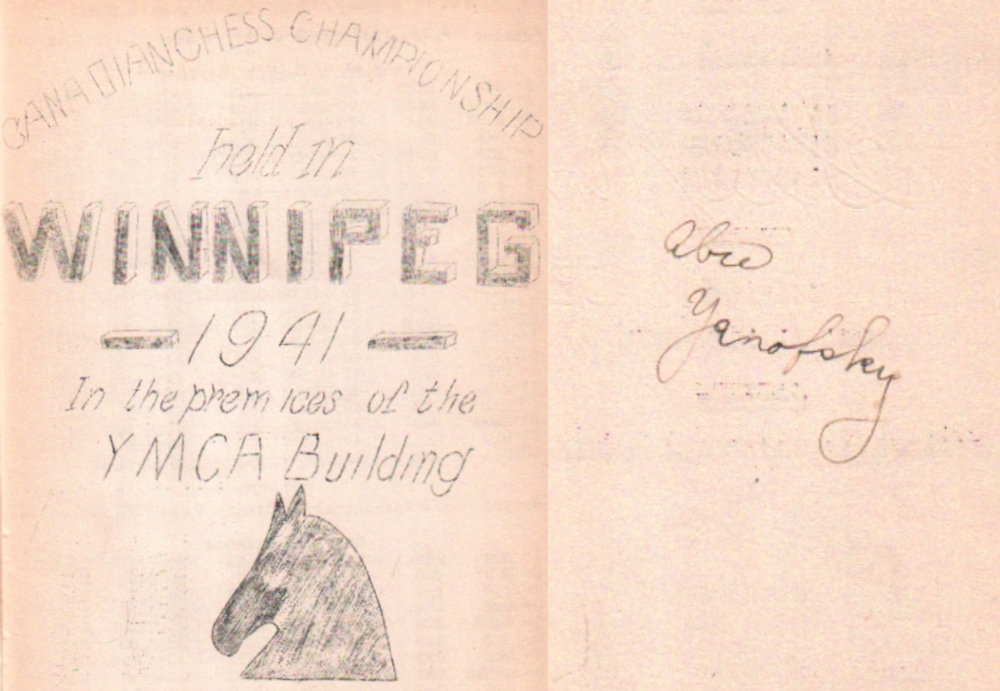 CANADIAN CHESS CHAMPIONSHIP
held in
WINNIPEG
— 1941 —
In the premices of the
YMCA Building
Abie
Yanofsky